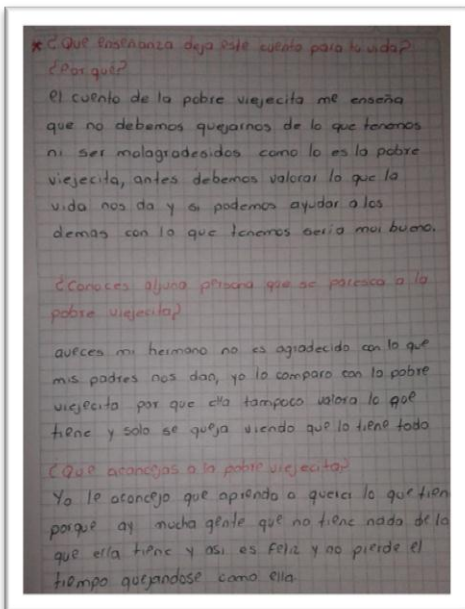 * ¿Que enseñanza deja este cuento para tu vida?
¿Por que?
el cuento de la pobre viejecita me enseña
que no debemos quejarnos de lo que tenemos
ni ser malagradesidos como lo es la pobre
viejecita, antes debemos valorar lo que la
vida nos da y si podemos ayudar a los
demas con lo que tenemos seria mui bueno.
¿Conoces alguna persona que se paresca a la
pobre viejecita?
aveces mi hermano no es agradecido con lo que
mis padres nos dan, yo lo comparo con la pobre
viejecita por que ella tampoco valora lo que
tiene y solo se queja viendo que lo tiene todo
¿Que aconsejas a la pobre viejecita?
Yo le aconcejo que aprenda a querer lo que tien
porque ay mucha gente que no tiene nada de lo
que ella tiene y asi es feliz y no pierde el
tiempo quejandose como ella.